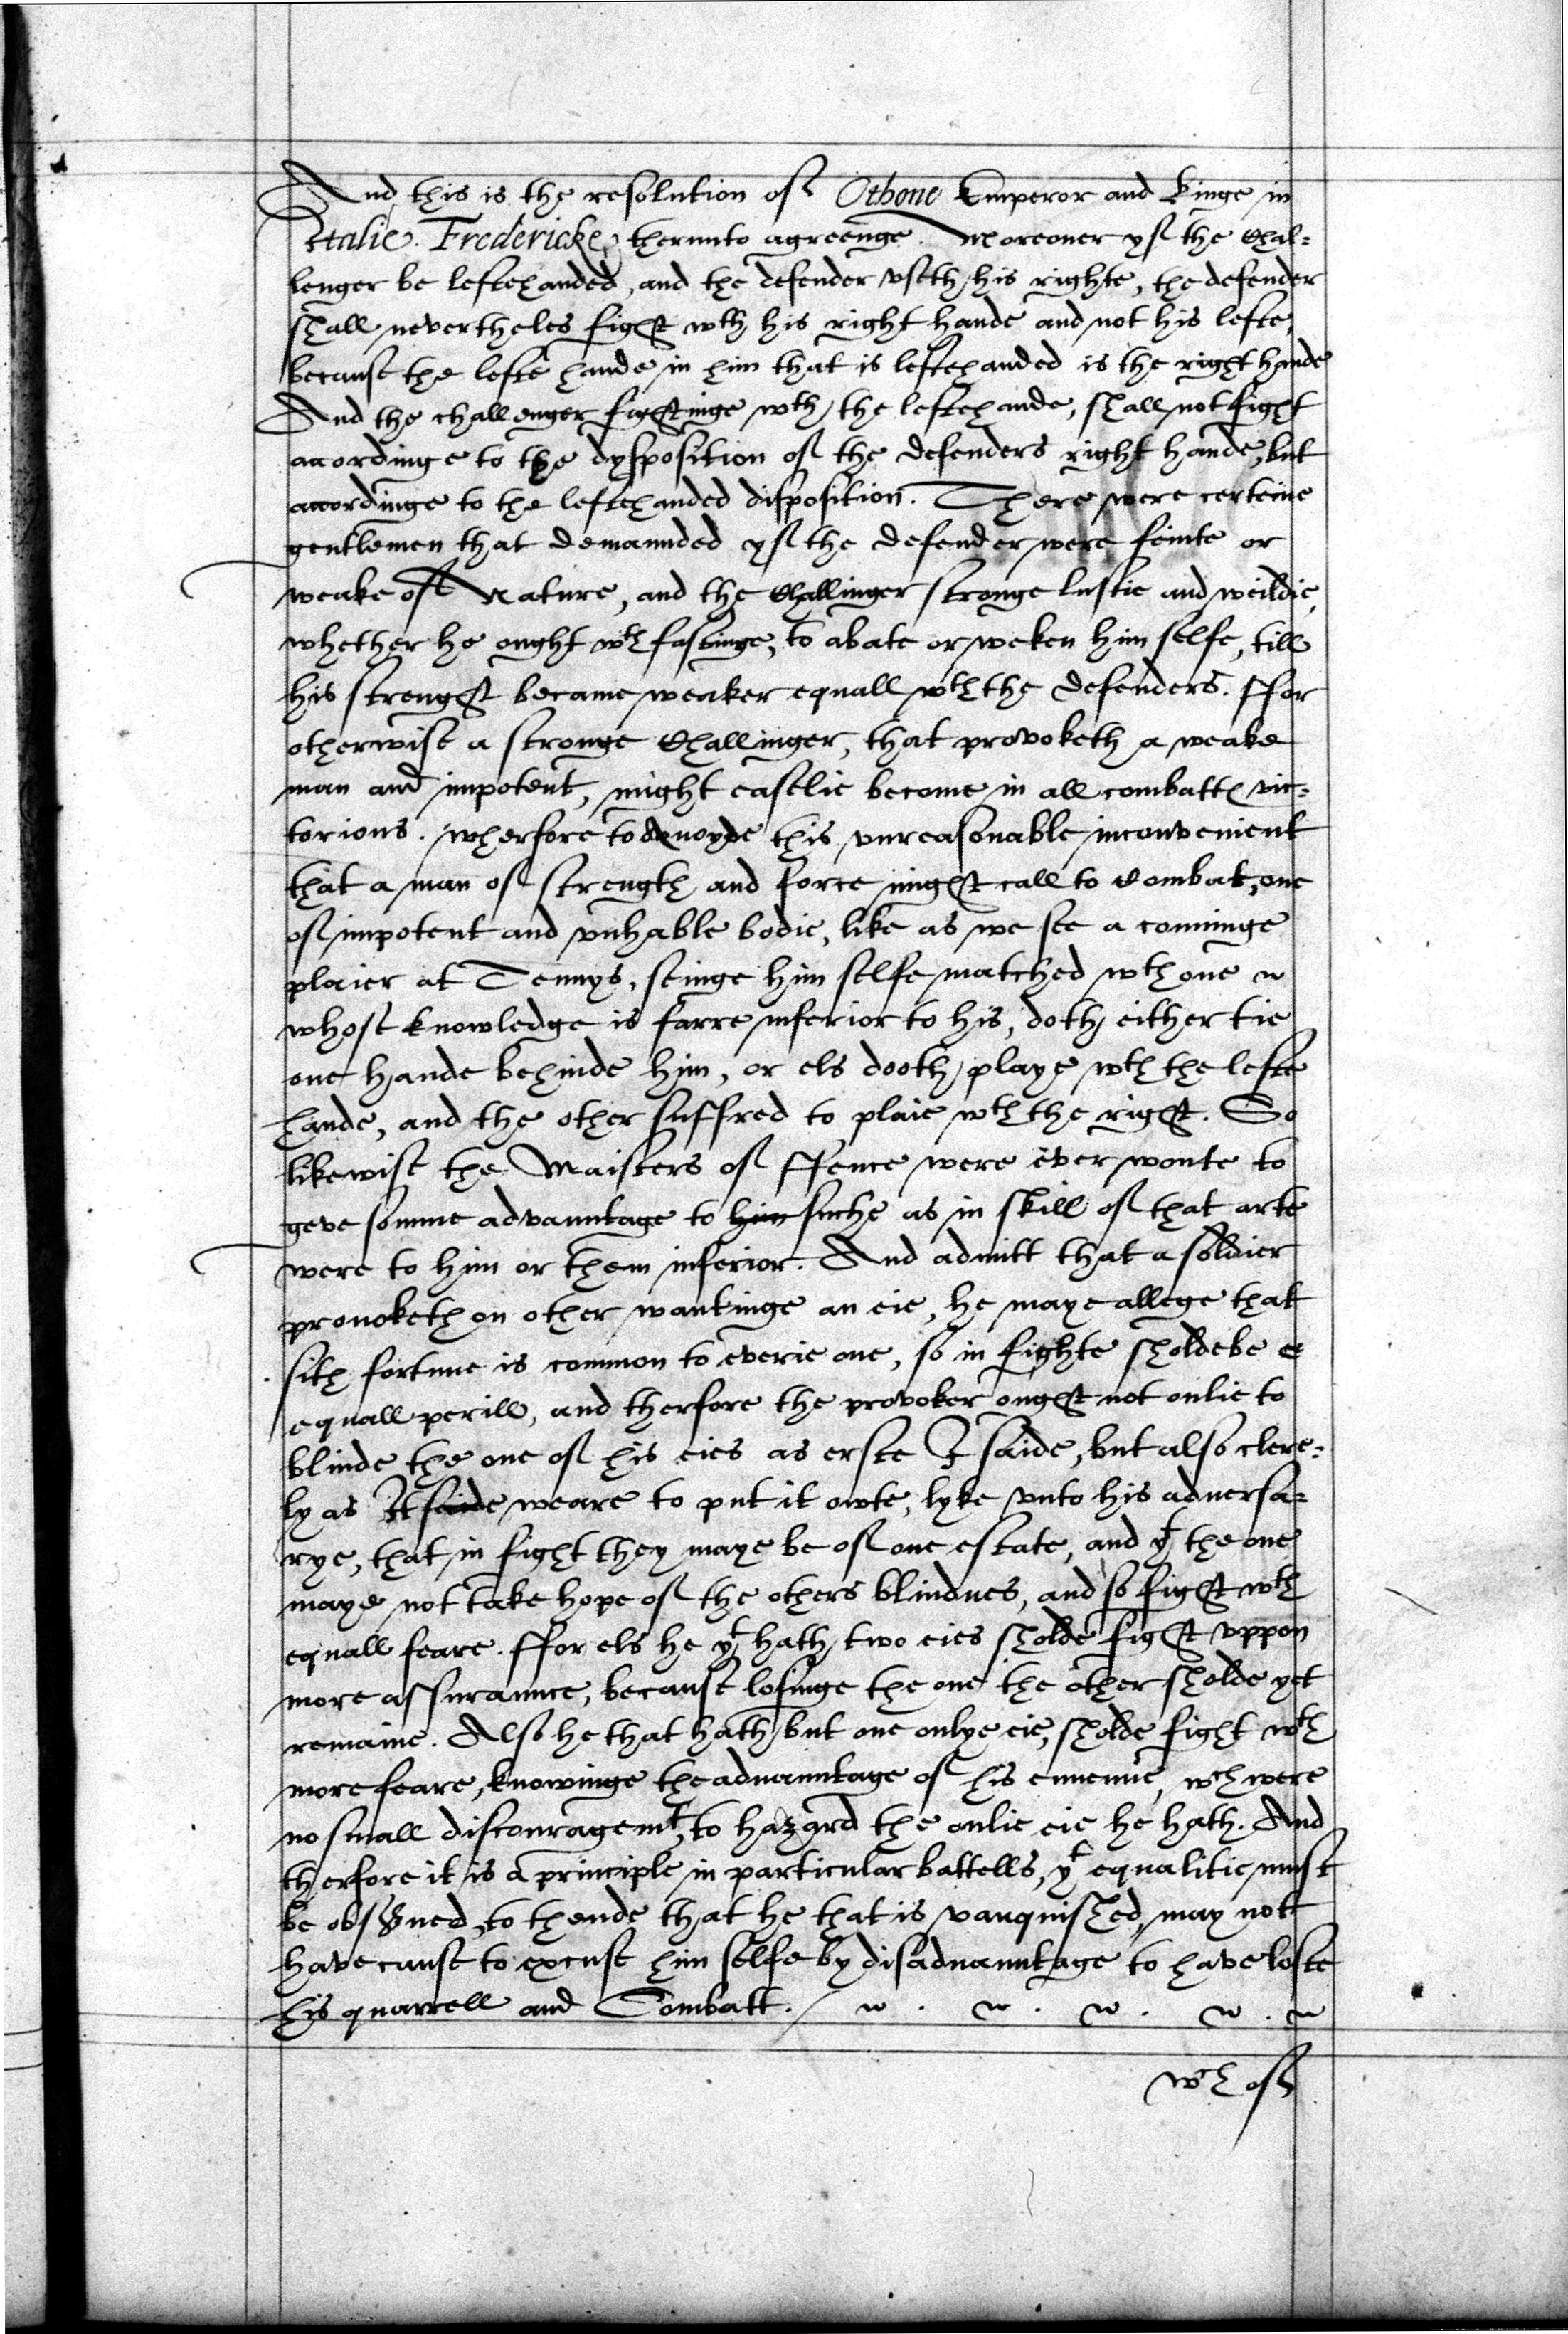 And this is the resolution of Othone Emperor and Kinge in
Italie. Fredericke therunto agreenge. Moreouer yf the Chal=
lenger be leftehanded, and the defender vseth his righte, the defender
shall nevertheles fight wth his right hande and not his lefte,
because the lefte hande in him that is leftehanded is the right hande
And the challenger fightinge wth the leftehande, shall not fight
accordinge to the dysposition of the defenders right hande, but
accordinge to the leftehanded disposition. There were certeine
gentlemen that demaunded yf the defender were feinte or
weake of Nature, and the Challinger stronge lustie and weildie,
whether he ought wth fastinge, to abate or weken him selfe, till
his strenght became weaker equall wth the defenders. ffor
otherwise a stronge Challinger, that provoketh a weake
man and impotent, might easelie become in all combatts vic=
torious. wherfore to avoyde this vnreasonable inconvenient
that a man of strength and force might call to Combat, one
of impotent and vnhable bodie, like as we see a conninge
plaier at Tennys, seinge him selfe matched wth one
whose knowledge is farre inferior to his, doth either tie
one hande behinde him, or els dooth playe wth the lefte
hande, and the other suffred to plaie wth the right. So
likewise the Maisters of ffence were ever wonte to
geve somme advauntage to him suche as in skill of that arte
were to him or them inferior. And admitt that a soldier
prouoketh on other wantinge an eie, he maye allege that
sith fortune is common to everie one, so in fighte sholde be
equall perill, and therfore the provoker ought not onlie to
blinde the one of his eies as erste I saide, but also clere=
ly as It saide weare to put it owte, lyke vnto his aduersa=
rye, that in fight they maye be of one estate, and yt the one
maye not take hope of the others blindnes, and so fight wth
equall feare. ffor els he yt hath two eies sholde fight vppon
more assuraunce, because losinge the one the other sholde yet
remaine. Also he that hath but one onlye eie, sholde fight wth
more feare, knowinge the aduauntage of his ennemie, wch were
no small discouragemt, to hazard the onlie eie he hath. And
therfore it is a principle in particular battells, yt equalitie must
be obserued, to thende that he that is vanquished may not
have cause to excuse him selfe by disaduauntage to have loste
his quarrell and Combatt.
wch of